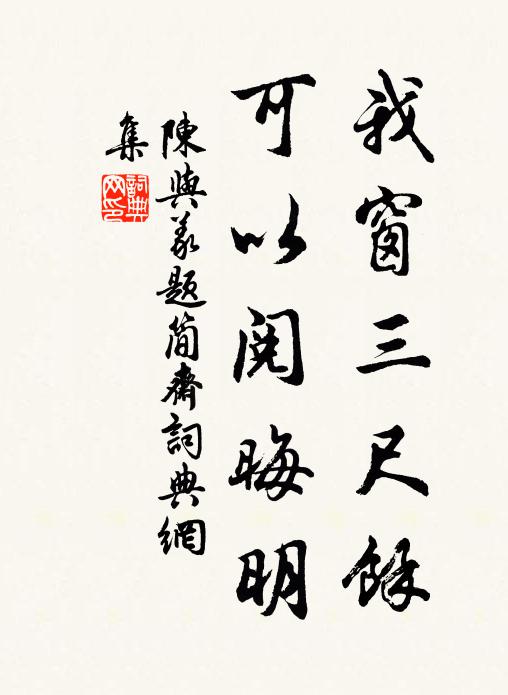 我窗三尺餘
可以閱晦明
陳與義題簡齋詞典網
集
詞典網印